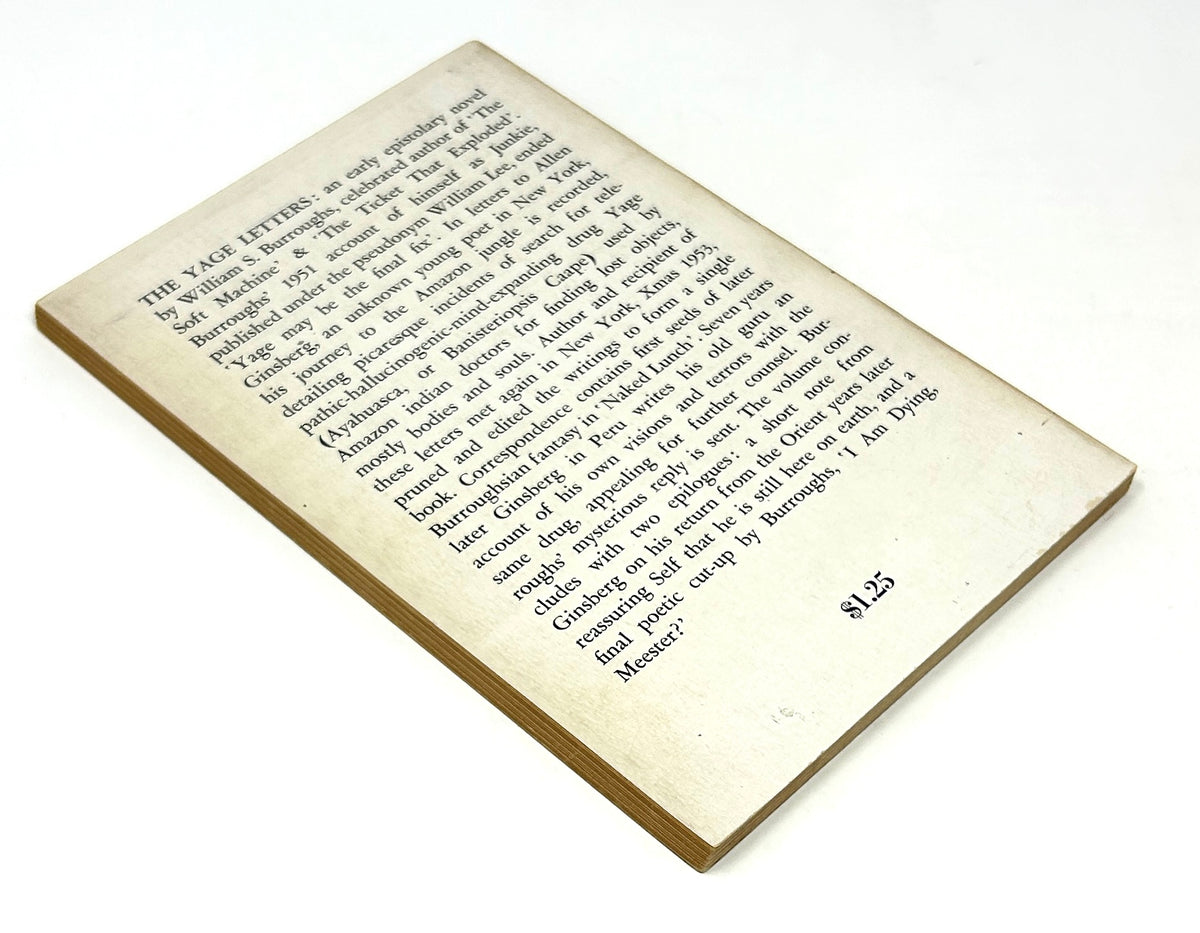 THE YAGE LETTERS: an early epistolary novel
by William S. Burroughs, celebrated author of 'The
Soft Machine' & 'The Ticket That Exploded'.
Burroughs' 1951 account of himself as Junkie,
published under the pseudonym William Lee, ended
'Yage may be the final fix'. In letters to Allen
Ginsberg, an unknown young poet in New York,
his journey to the Amazon jungle is recorded,
detailing picaresque incidents of search for tele-
pathic-hallucinogenic-mind-expanding drug Yage
(Ayahuasca, or Banisteriopsis Caape) used by
Amazon indian doctors for finding lost objects,
mostly bodies and souls. Author and recipient of
these letters met again in New York, Xmas 1953,
pruned and edited the writings to form a single
book. Correspondence contains first seeds of later
Burroughsian fantasy in 'Naked Lunch'. Seven years
later Ginsberg in Peru writes his old guru an
account of his own visions and terrors with the
same drug, appealing for further counsel. Bur-
roughs' mysterious reply is sent. The volume con-
cludes with two epilogues: a short note from
Ginsberg on his return from the Orient years later
reassuring Self that he is still here on earth, and a
final poetic cut-up by Burroughs, 'I Am Dying,
Meester?'
$1.25